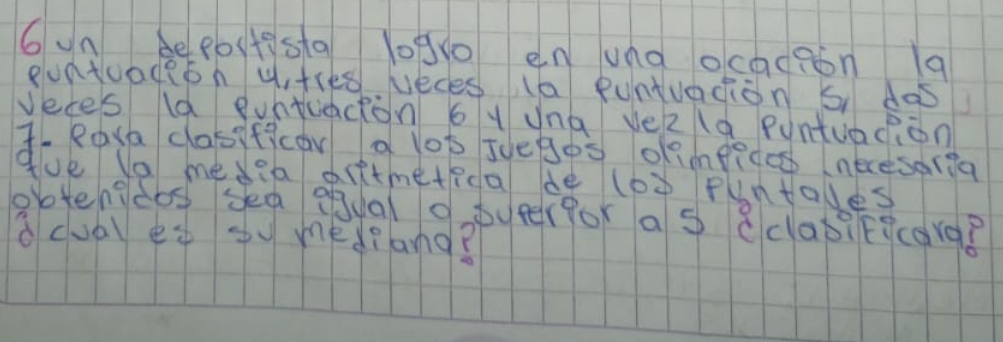 6 un depostista logro en una ocación la
puntuación 4, tres veces la puntuación 5, dos
veces la puntuación 6 y una vez la puntuación
7. Para clasificar a los juegos olimpicos necesaria
que la media aritmetica de los puntajes
obtenidos sea igual o superior a 5 ¿clasificara?
¿cual es su mediana?